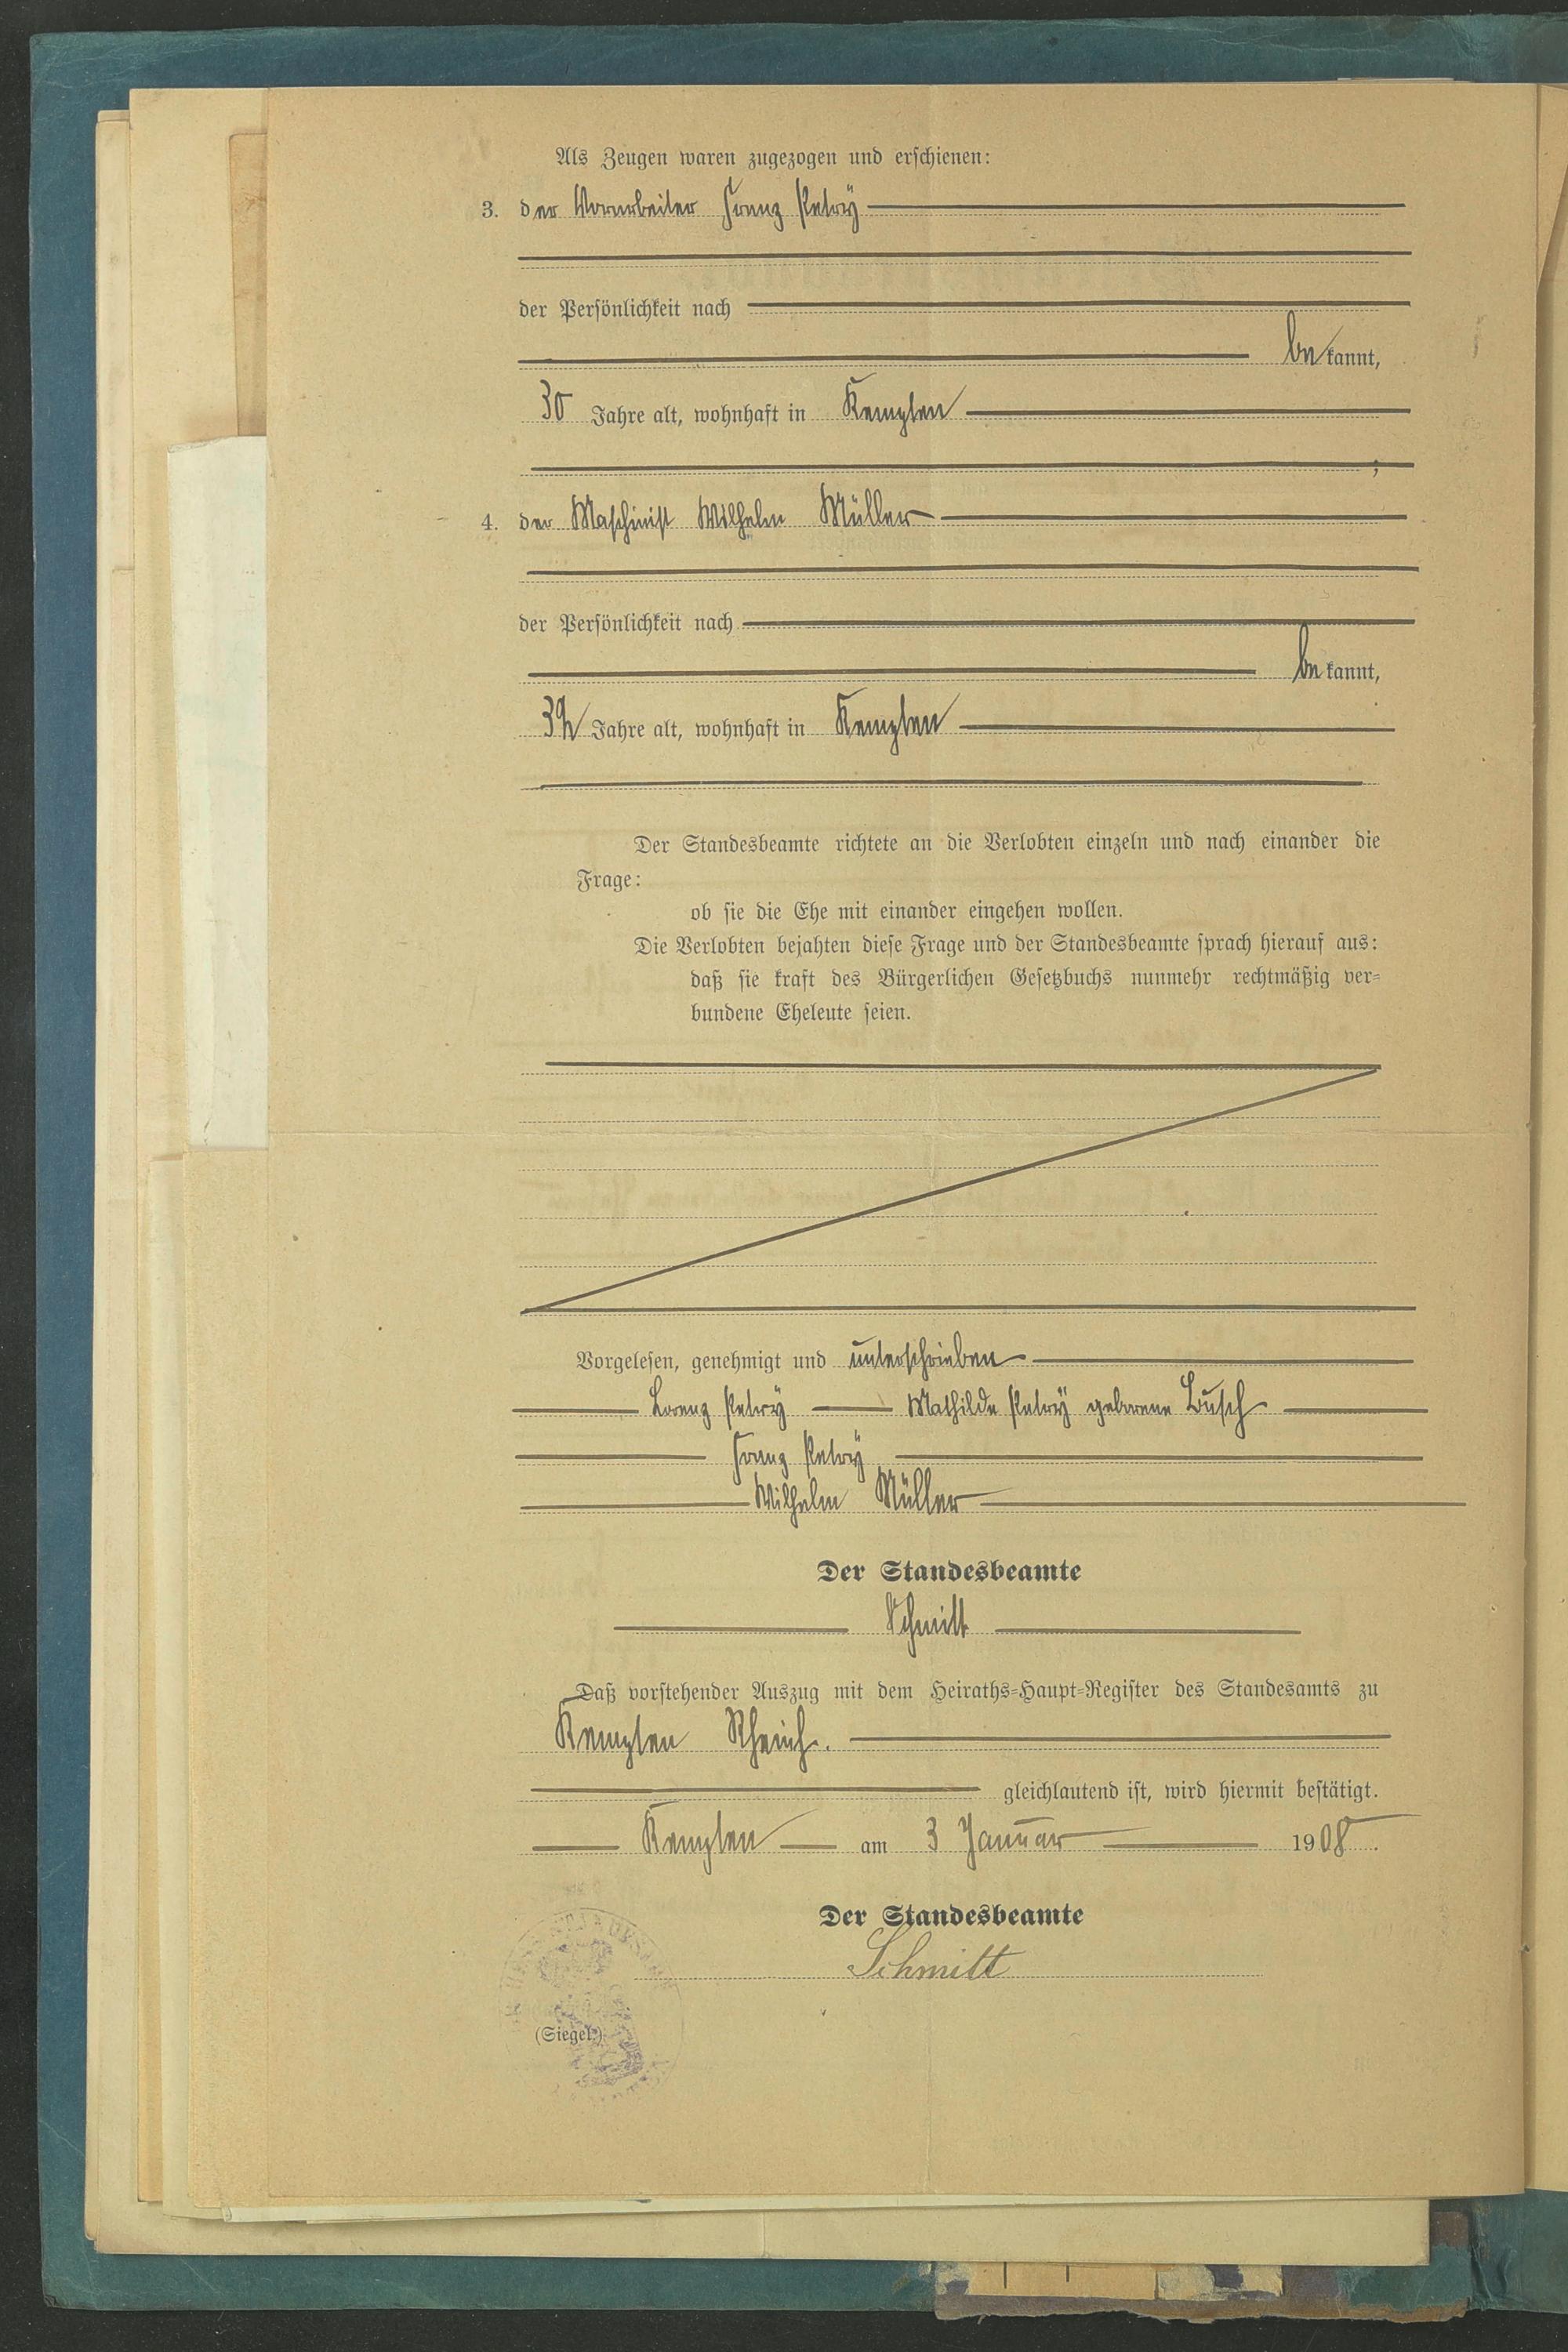 Als Zeugen waren zugezogen und erschienen:
3. der Vorarbeiter Franz Petrÿ
der Persönlichkeit nach
be kannt,
30 Jahre alt, wohnhaft in Kempten
;
4. der Maschinist Wilhelm Müller
der Persönlichkeit nach
be kannt,
Jahre alt, wohnhaft in Kempten
Der Standesbeamte richtete an die Verlobten einzeln und nach einander die
Frage:
ob sie die Ehe mit einander eingehen wollen.
Die Verlobten bejahten diese Frage und der Standesbeamte sprach hierauf aus:
daß sie kraft des Bürgerlichen Gesetzbuchs nunmehr rechtmäßig ver-
bundene Eheleute seien.
Vorgelesen, genehmigt und unterschrieben
Lorenz Petrÿ Mathilde Petrÿ geborene Busch
Franz Petrÿ
Wilhelm Müller
Der Standesbeamte
Schmitt
Daß vorstehender Auszug mit dem Heiraths-Haupt-Register des Standesamts zu
Kempten
gleichlautend ist, wird hiermit bestätigt.
Kempten am 3 Januar 1908.
Der Standesbeamte
Schmitt
(Siegel.)